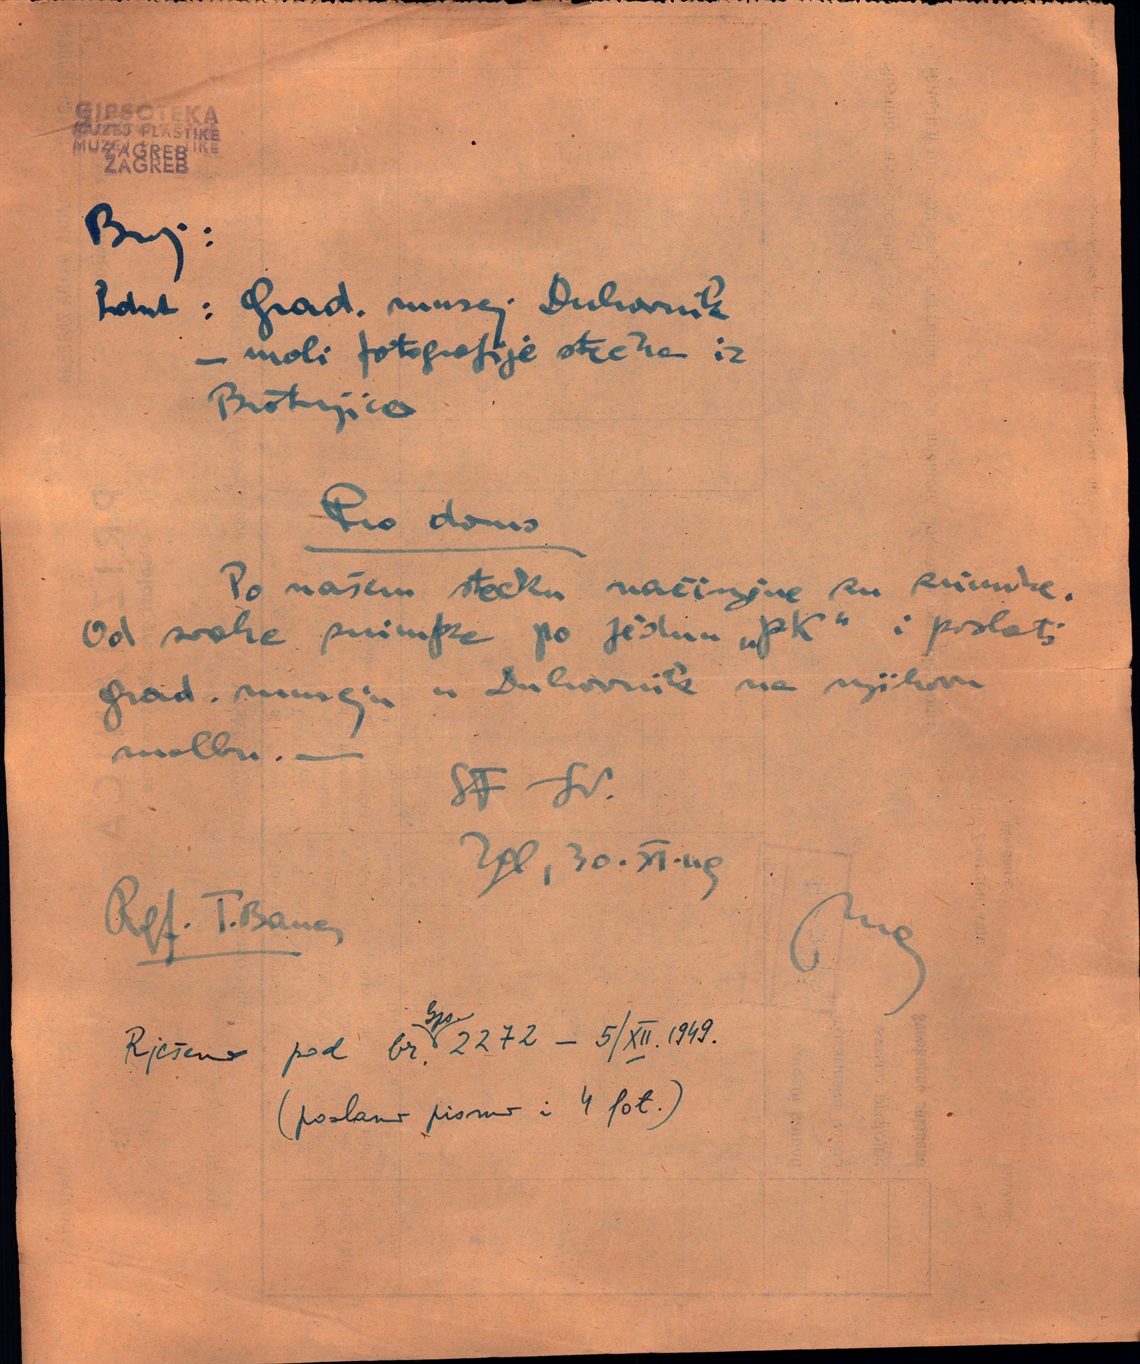 GIPSOTEKA
MUZEJ PLASTIKE
MUZEJ PLASTIKE
ZAGREB
ZAGREB
Broj :
: Grad. muzej Dubrovnik
— moli fotografije stećka iz
Brotnjica
Pro domo
Po našem stećku načinjene su snimke.
Od svake snimke po jednu „PK" i poslati
grad. muzeju u Dubrovnik na njihovu
molbu. —
SF - SN.
Zgb, 30. XI. 49
Ref. T. Bauer
Rješeno pod br. Gps. 2272 – 5/XII. 1949.
(poslano pismo i 4 fot.)